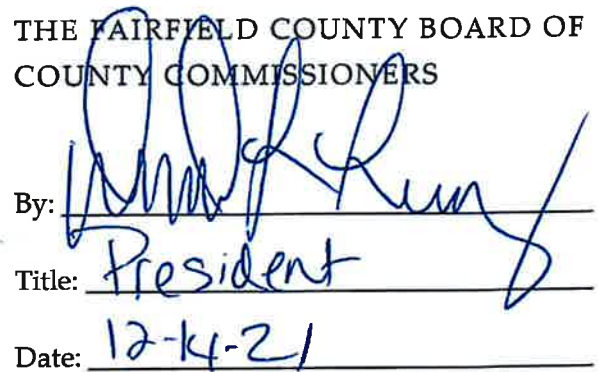 THE FAIRFIELD COUNTY BOARD OF
COUNTY COMMISSIONERS
By:
Title: President
Date: 12-14-21